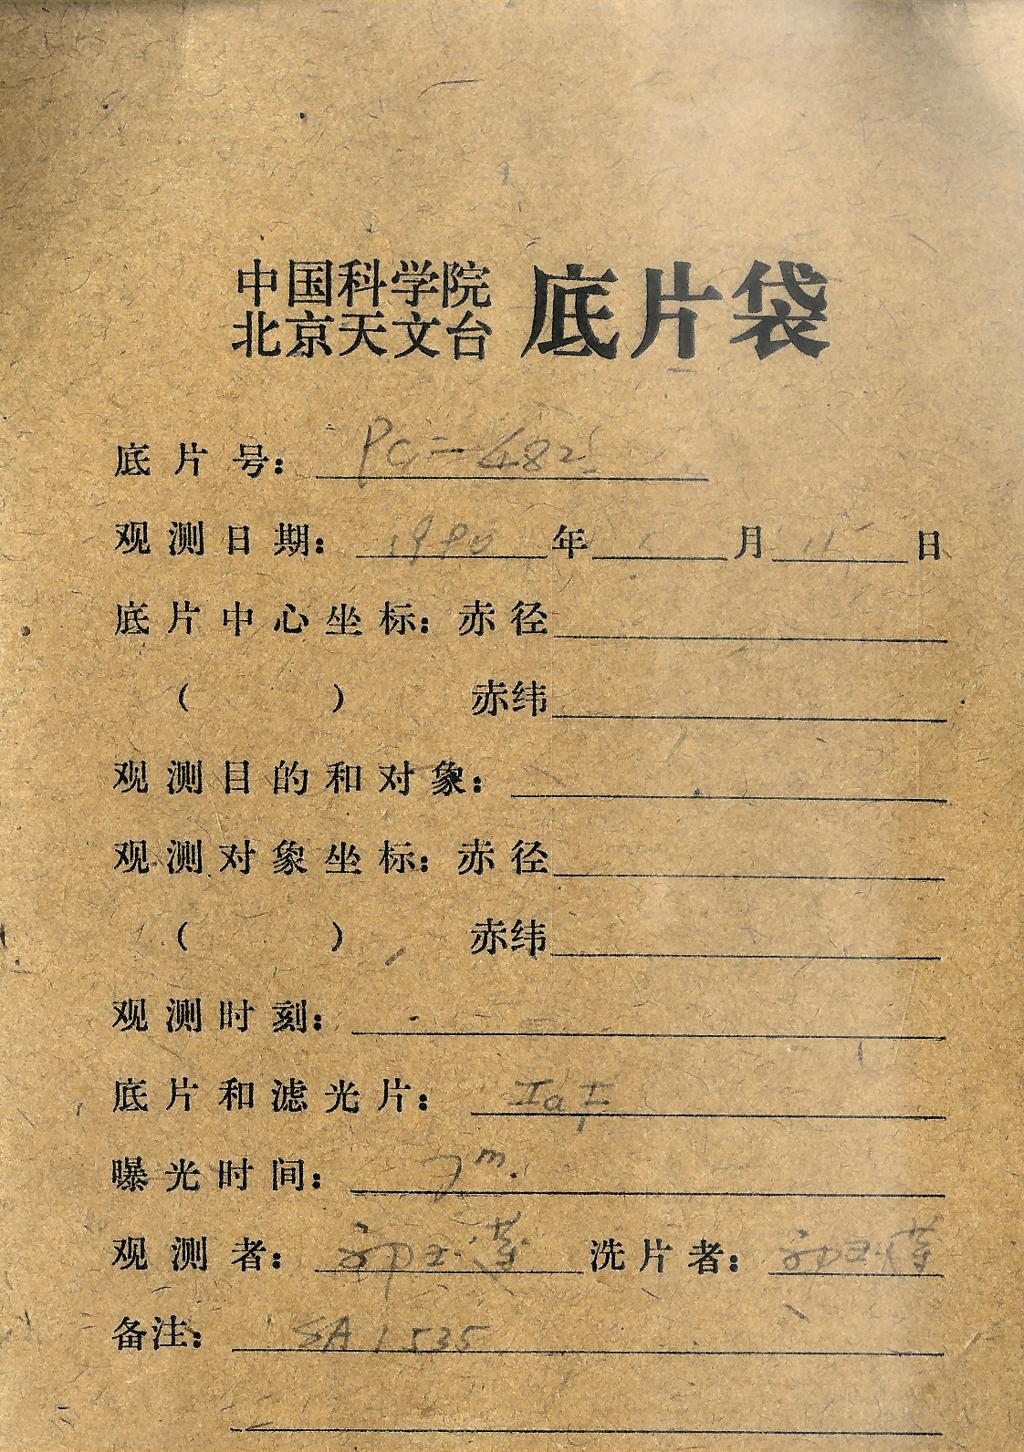 中国科学院
北京天文台 底片袋
底片号： PC-482
观测日期： 1980 年 1 月 11 日
底片中心坐标：赤径
（ ） 赤纬
观测目的和对象：
观测对象坐标：赤径
（ ） 赤纬
观测时刻：
底片和滤光片： IaF
曝光时间： 7m.
观测者： 洗片者：
备注： SA1535